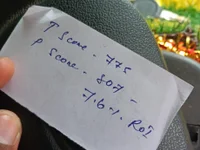 T Score - 775
P Score - 807 -
7.6 %. RoI